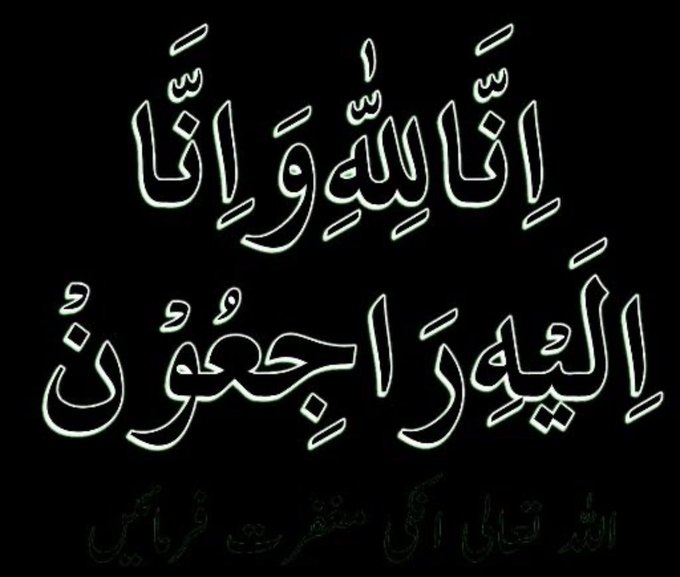 اِنَّا لِلّٰهِ وَاِنَّا
اِلَيْهِ رَاجِعُوْنْ
اللہ تعالی انکی مغفرت فرمائیں